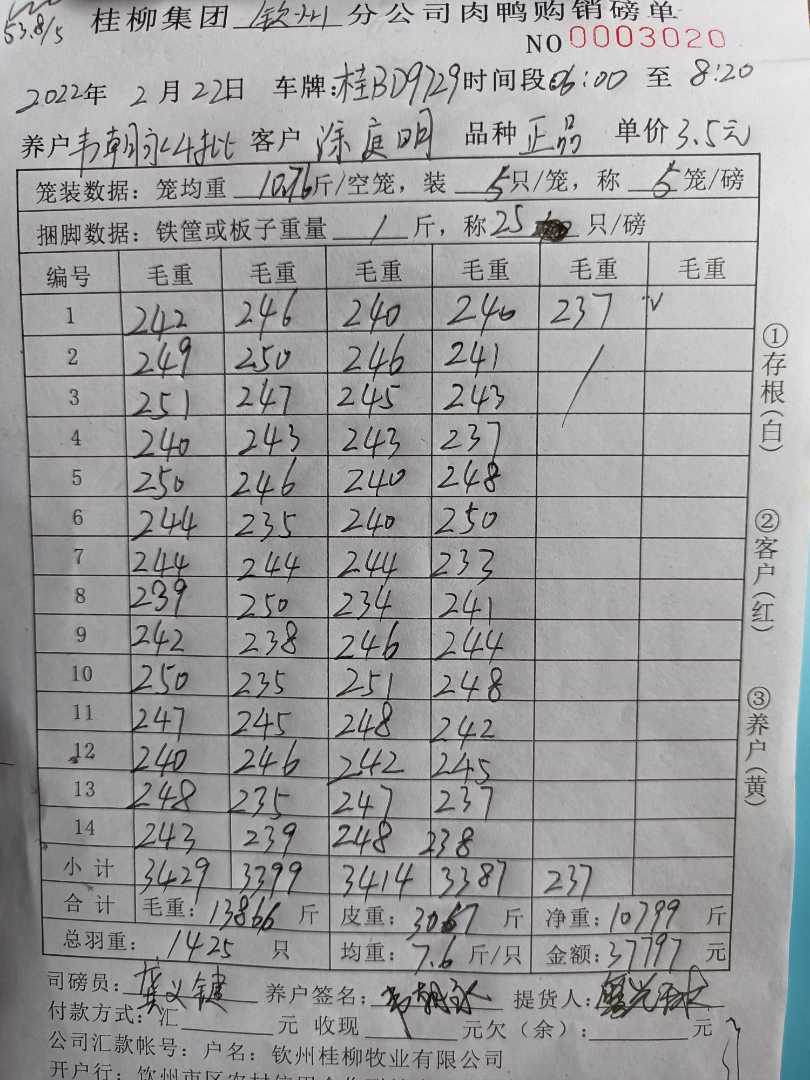 53.8/5
桂柳集团 钦州 分公司肉鸭购销磅单
NO 0003020
2022年 2月22日 车牌:桂BD9729时间段:06:00 至 8:20
养户韦朝永4批 客户 涂庭明 品种 正品 单价 3.5元
笼装数据：笼均重 10.76斤/空笼，装 5只/笼，称 5笼/磅
捆脚数据：铁筐或板子重量 1 斤，称25 只/磅
编号 毛重 毛重 毛重 毛重 毛重 毛重
1 242 246 240 246 237
2 249 250 246 241
3 251 247 245 243
4 240 243 243 237
5 250 246 240 248
6 244 235 240 250
7 244 244 244 233
8 239 250 234 241
9 242 238 246 244
10 250 235 251 248
11 247 245 248 242
12 240 246 242 245
13 248 235 247 237
14 243 239 248 238
小计 3429 3399 3414 3387 237
合计 毛重：13866 斤 皮重：3067 斤 净重：10799 斤
总羽重：1425 只 均重：7.6 斤/只 金额：37797 元
司磅员： 养户签名：韦朝永 提货人：
付款方式：汇 元 收现 元欠（余）： 元
公司汇款帐号：户名：钦州桂柳牧业有限公司
开户行：钦州市区农村信用合作
①存根(白)
②客户(红)
③养户(黄)